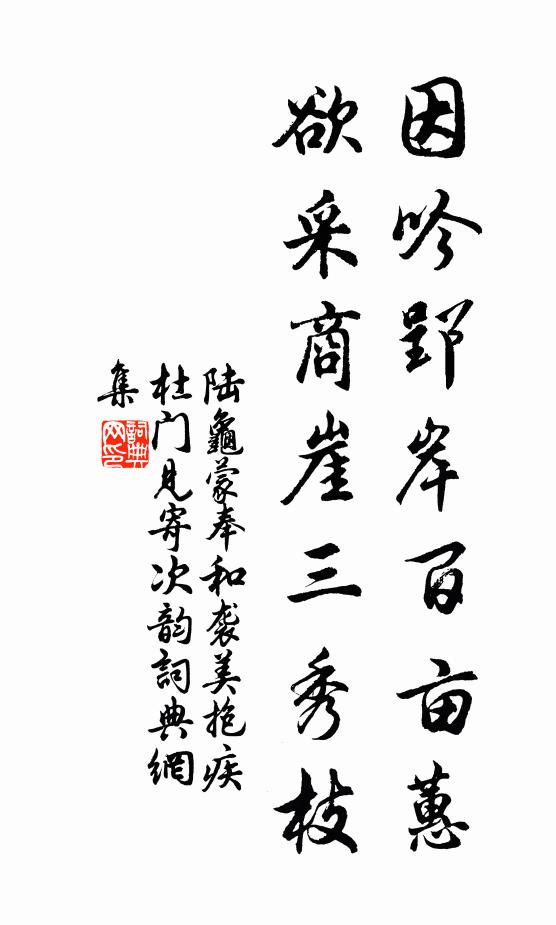 因吟郢岸百亩蕙
欲采商崖三秀枝
陆龜蒙奉和袭美抱疾
杜门見寄次韵詞典網
集
詞典网印